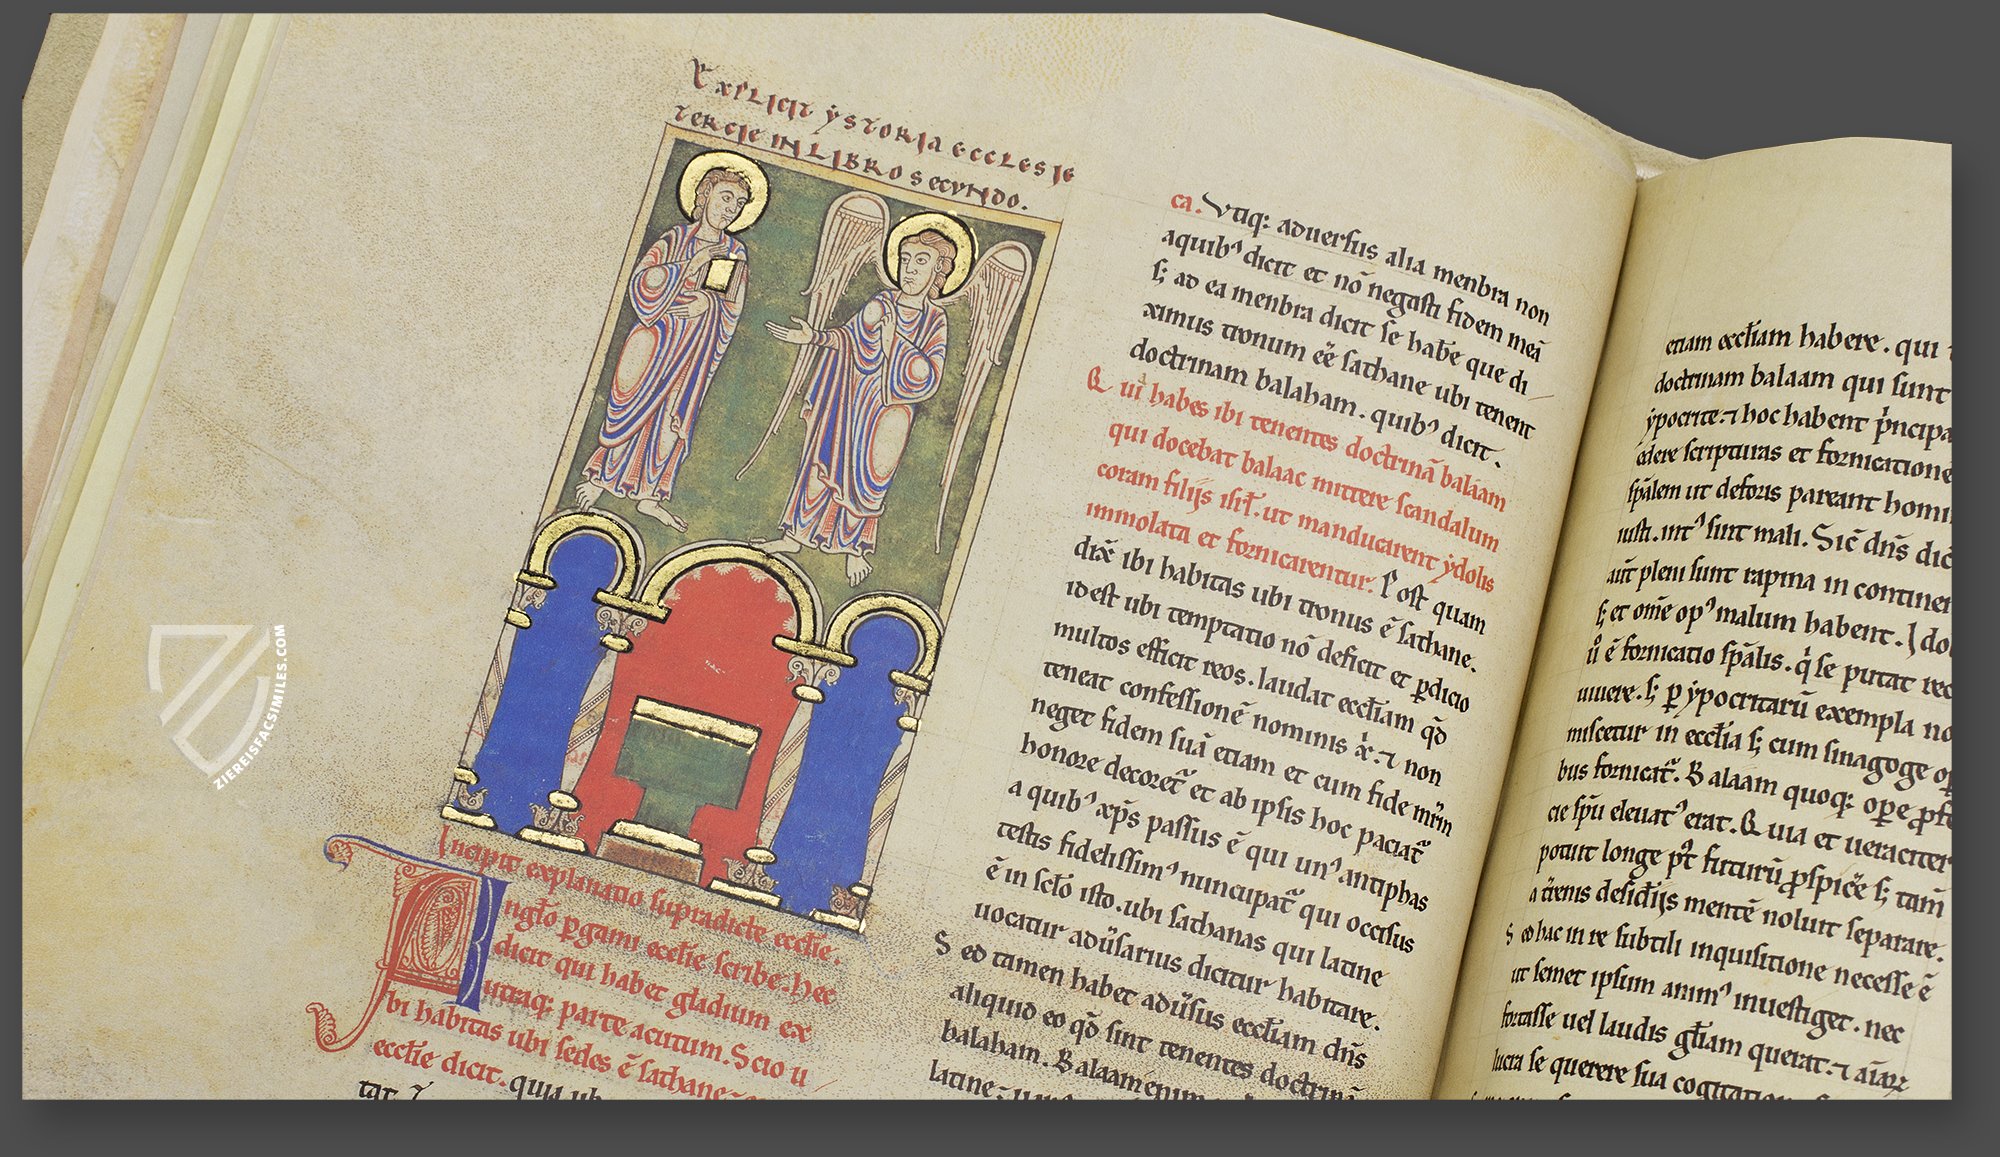 Explicit ẏstoria ecclesie
tercie in libro secundo.
Incipit explanatio supradicte eccl̄ie.
Angl̄o ꝑgami eccl̄ie scribe. hec
dicit qui habet gladium ex
utraq; parte acutum. Scio u
bi habitas ubi sedes ē sathane
eccl̄ie dicit. quia ub
tat
ca. Vtiq; aduersus alia menbra non
aquibꝰ dicit et nō negasti fidem meā
s; ad ea menbra dicit se habe᷑ que di
ximus tronum eē̄ sathane ubi tenent
doctrinam balaham. quibꝰ dicit.
Qui habes ibi tenentes doctrinā balaam
qui docebat balaac mittere scandalum
coram filijs isrl̄. ut manducarent ẏdolis
immolata et fornicarentur. Post quam
dix̄ ibi habitas ubi tronus ē sathane.
idest ubi temptatio nō deficit et ꝑdicio
multos efficit reos. laudat eccl̄iam qd̄
teneat confessionē nominis xp̄i ⁊ non
neget fidem suā etiam et cum fide mr̄m
honore decoret᷑ et ab ipsis hoc paciat᷑
a quibꝰ xp̄s passus ē qui unꝰ antiphas
testis fidelissimꝰ nuncupat᷑ qui occisus
ē in scl̄o isto. ubi sathanas qui latine
uocatur adu̅sarius dicitur habitare.
Sed tamen habet adu̅sus eccl̄iam dn̄s
aliquid eo qd̄ sint tenentes doctrinā
balaham. Balaam enim
latine
etiam eccl̄iam habere. qui
doctrinam balaam qui sunt
ẏpocrite. ⁊ hoc habent pͥncipa
edere scripturas et fornicatione
sp̄alem ut deforis pareant homi
iusti. intꝰ sunt mali. Sic̄ dn̄s dic
aut̄ pleni sunt rapina in continen
s; et om̄e opꝰ malum habent. Ido
ē fornicatio sp̄alis. qͥ se putat rec
uiuere. s; ꝑ ẏpocritarū exempla no
miscetur in eccl̄ia s; cum sinagoge
bus fornicat᷑. Balaam quoq; oꝑe ꝓfe
cie sp̄u eleuatꝰ erat. Quia et ueraciter
potuit longe pt̄ futurū ꝓspice᷑ s; tam̄
a tr̄enis desid̄ijs mentē noluit separare.
Sed hac in re subtili inquisitione necesse ē
ut semet ipsum animꝰ inuestiget. nec
fortasse uel laudis gl̄iam querat. ⁊
lucra se querere sua cogitation
ZIEREISFACSIMILES.COM